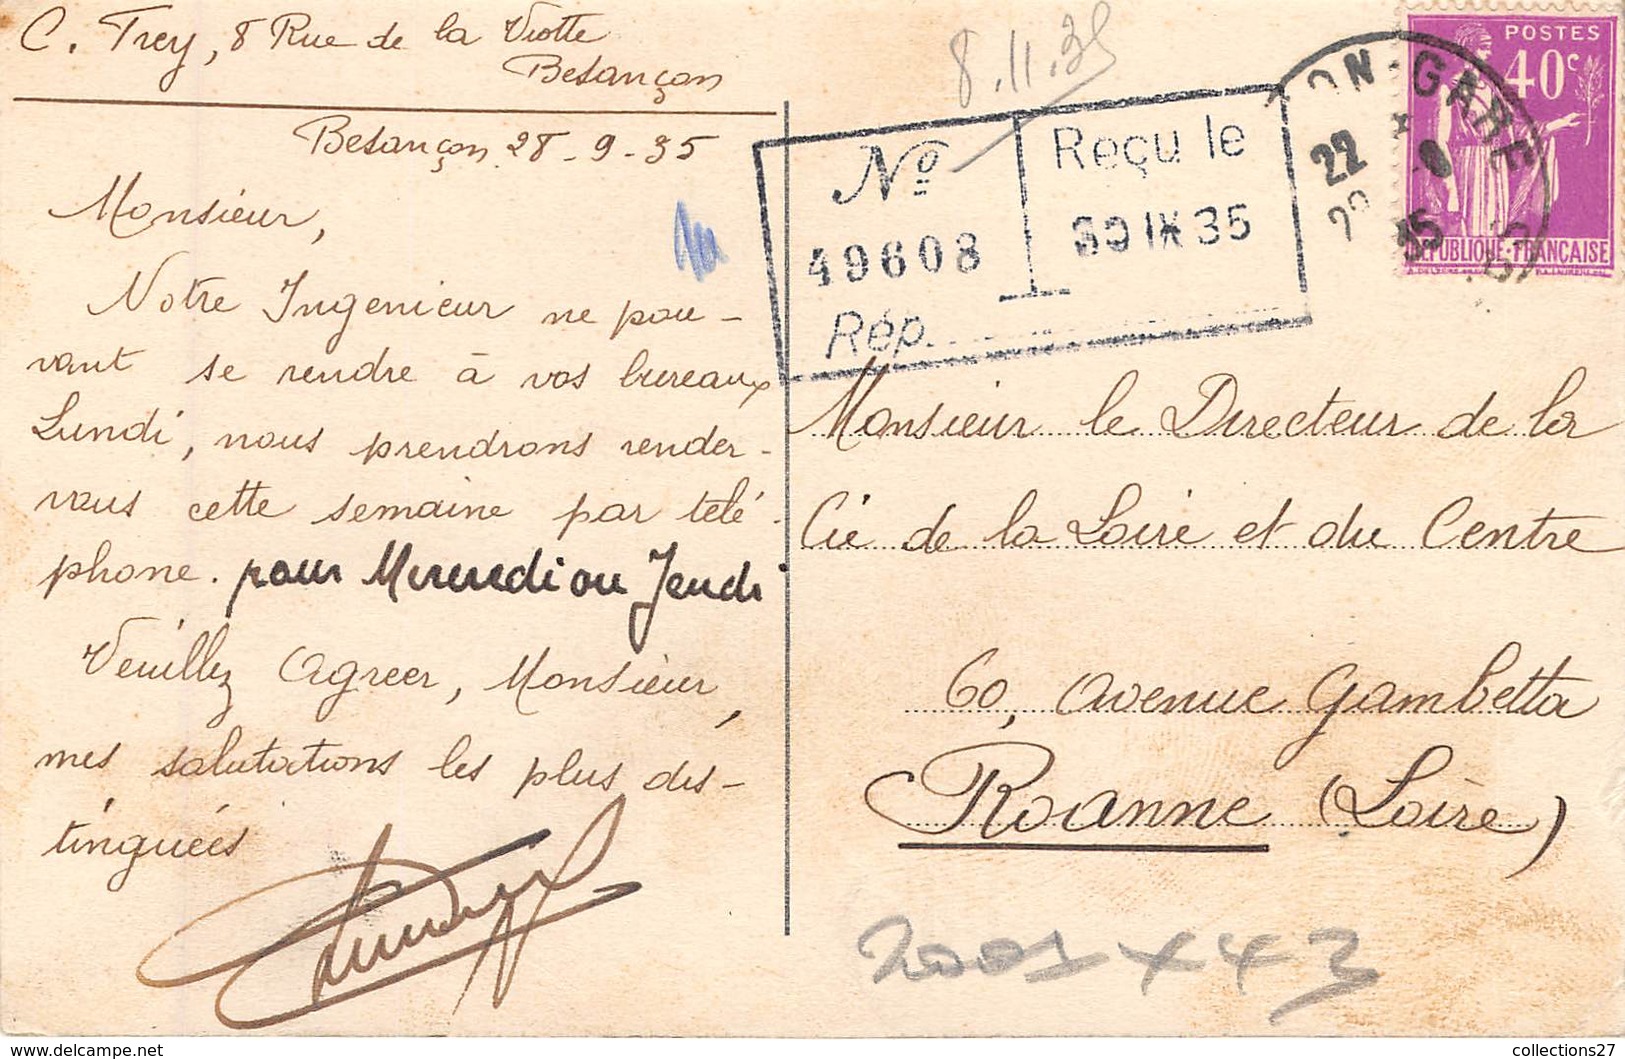 C. Trey, 8 Rue de la Viotte
Besançon
Besançon 28-9-35
Monsieur,
Notre Ingenieur ne pou-
vant se rendre à vos bureaux
Lundi, nous prendrons render-
vous cette semaine par télé-
phone. pour Mercredi ou Jeudi
Veuillez Agreer, Monsieur,
mes salutations les plus dis-
tinguées
8.11.35
No
49608
Rép.
Reçu le
30 IX 35
ON-GARE
22
35
POSTES
40c
REPUBLIQUE·FRANCAISE
Monsieur le Directeur de la
Cie de la Loire et du Centre
60, Avenue Gambetta
Roanne (Loire)
2001 x 43
collections27